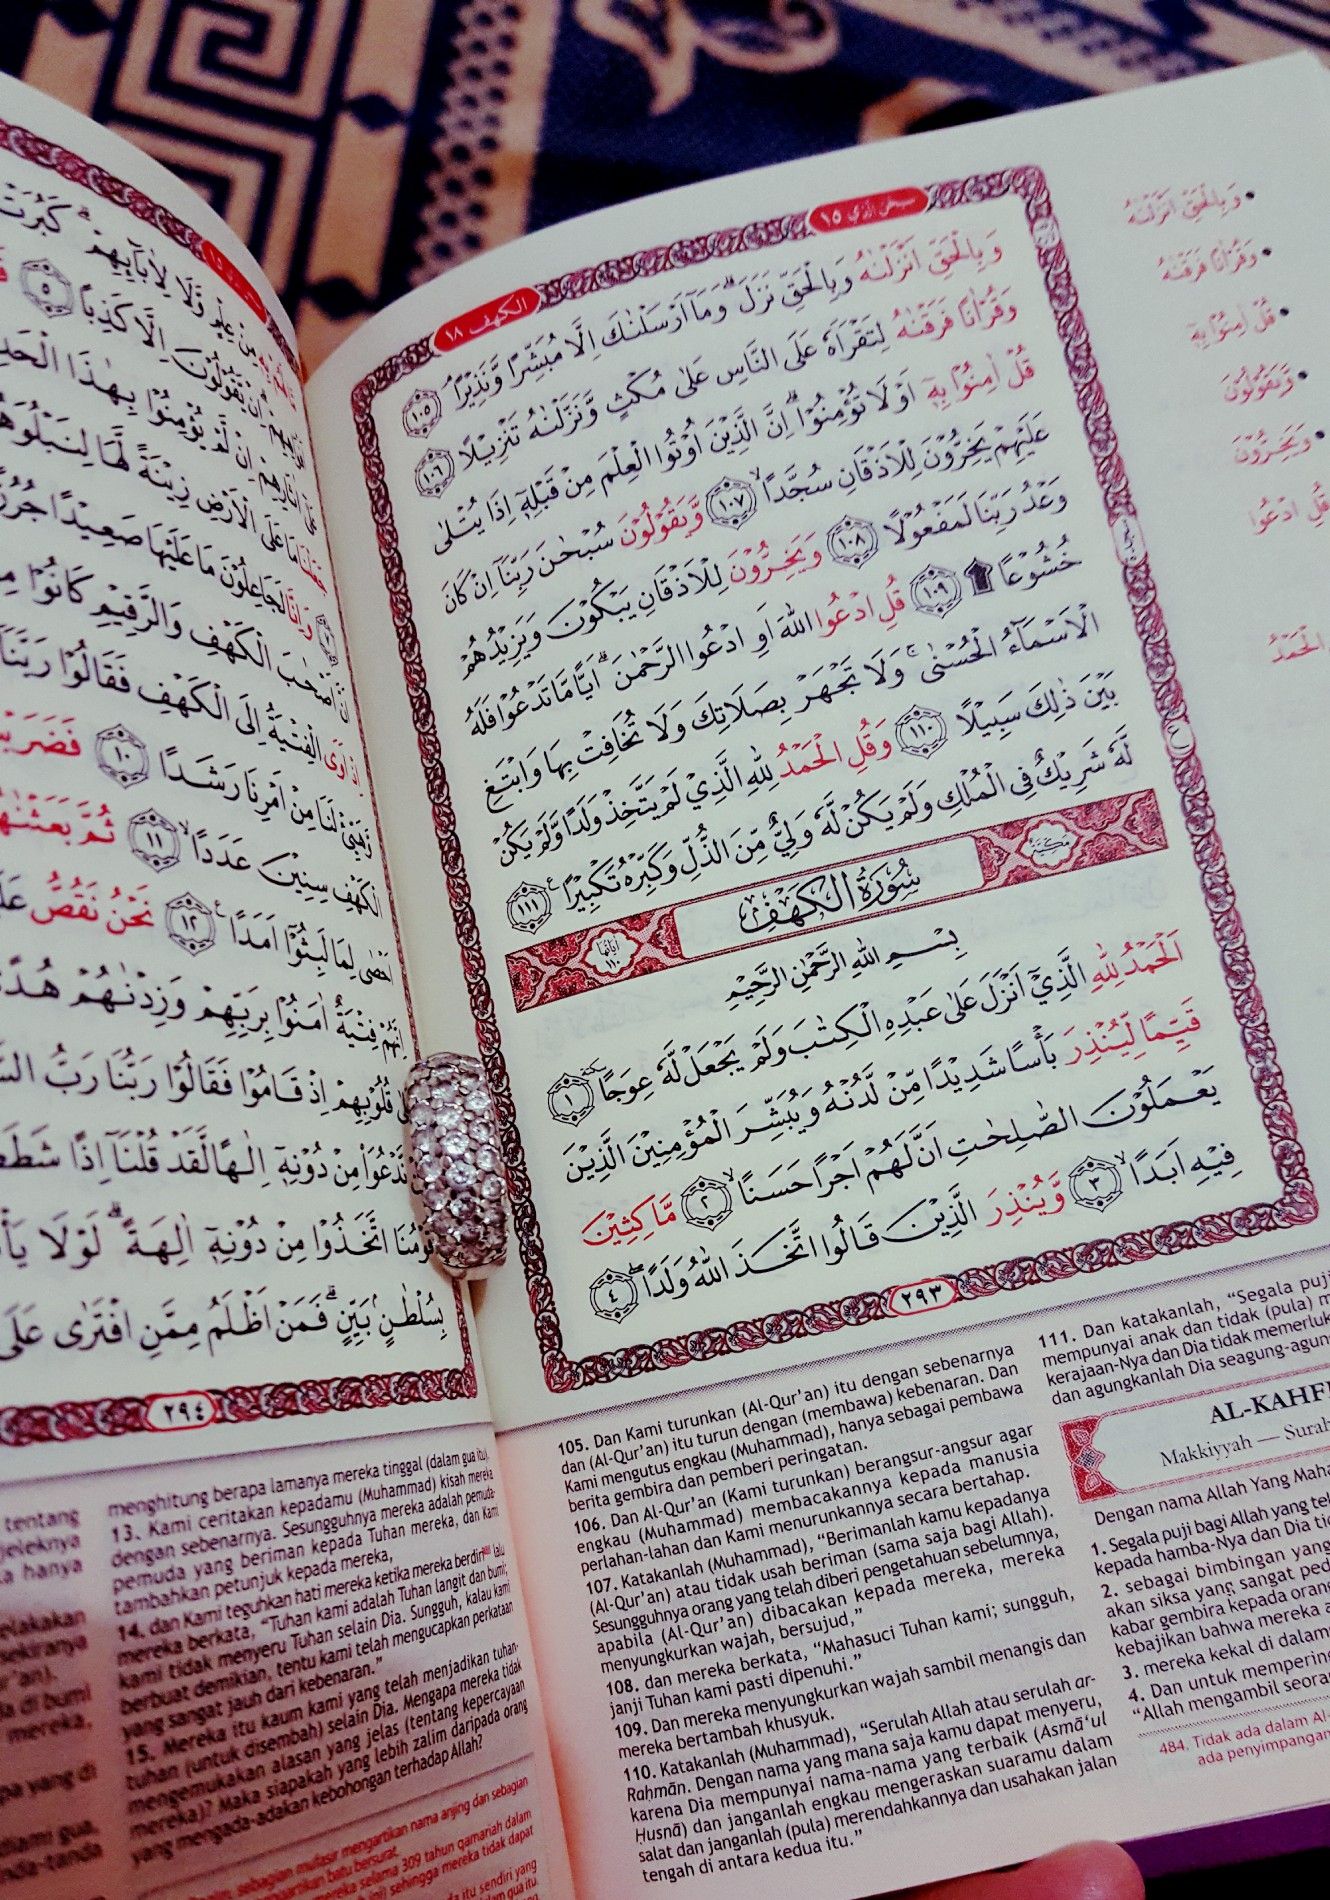 سبحن الذي ١٥
الكهف ١٨
وَبِالْحَقِّ اَنْزَلْنٰهُ وَبِالْحَقِّ نَزَلَۗ وَمَآ اَرْسَلْنٰكَ اِلَّا مُبَشِّرًا وَّنَذِيْرًاۘ ١٠٥
وَقُرْاٰنًا فَرَقْنٰهُ لِتَقْرَاَهٗ عَلَى النَّاسِ عَلٰى مُكْثٍ وَّنَزَّلْنٰهُ تَنْزِيْلًا ١٠٦
قُلْ اٰمِنُوْا بِهٖٓ اَوْ لَا تُؤْمِنُوْاۗ اِنَّ الَّذِيْنَ اُوْتُوا الْعِلْمَ مِنْ قَبْلِهٖٓ اِذَا يُتْلٰى
عَلَيْهِمْ يَخِرُّوْنَ لِلْاَذْقَانِ سُجَّدًاۙ ١٠٧ وَّيَقُوْلُوْنَ سُبْحٰنَ رَبِّنَآ اِنْ كَانَ
وَعْدُ رَبِّنَا لَمَفْعُوْلًا ١٠٨ وَيَخِرُّوْنَ لِلْاَذْقَانِ يَبْكُوْنَ وَيَزِيْدُهُمْ
خُشُوْعًا ۩ ١٠٩ قُلِ ادْعُوا اللّٰهَ اَوِ ادْعُوا الرَّحْمٰنَۗ اَيًّا مَّا تَدْعُوْا فَلَهُ
الْاَسْمَاۤءُ الْحُسْنٰىۚ وَلَا تَجْهَرْ بِصَلَاتِكَ وَلَا تُخَافِتْ بِهَا وَابْتَغِ
بَيْنَ ذٰلِكَ سَبِيْلًا ١١٠ وَقُلِ الْحَمْدُ لِلّٰهِ الَّذِيْ لَمْ يَتَّخِذْ وَلَدًا وَّلَمْ يَكُنْ
لَّهٗ شَرِيْكٌ فِى الْمُلْكِ وَلَمْ يَكُنْ لَّهٗ وَلِيٌّ مِّنَ الذُّلِّ وَكَبِّرْهُ تَكْبِيْرًا ࣖ ١١١
مكية
سُوْرَةُ الْكَهْفِ
اٰياتها ١١٠
بِسْمِ اللّٰهِ الرَّحْمٰنِ الرَّحِيْمِ
اَلْحَمْدُ لِلّٰهِ الَّذِيْٓ اَنْزَلَ عَلٰى عَبْدِهِ الْكِتٰبَ وَلَمْ يَجْعَلْ لَّهٗ عِوَجًا ۜ ١
قَيِّمًا لِّيُنْذِرَ بَأْسًا شَدِيْدًا مِّنْ لَّدُنْهُ وَيُبَشِّرَ الْمُؤْمِنِيْنَ الَّذِيْنَ
يَعْمَلُوْنَ الصّٰلِحٰتِ اَنَّ لَهُمْ اَجْرًا حَسَنًاۙ ٢ مَّاكِثِيْنَ
فِيْهِ اَبَدًاۙ ٣ وَّيُنْذِرَ الَّذِيْنَ قَالُوا اتَّخَذَ اللّٰهُ وَلَدًاۖ ٤
٢٩٣
وَبِالْحَقِّ اَنْزَلْنٰهُ
وَقُرْاٰنًا فَرَقْنٰهُ
قُلْ اٰمِنُوْا بِهٖٓ
وَّيَقُوْلُوْنَ
وَيَخِرُّوْنَ
قُلِ ادْعُوا
الْحَمْدُ
105. Dan Kami turunkan (Al-Qur'an) itu dengan sebenarnya
dan (Al-Qur'an) itu turun dengan (membawa) kebenaran. Dan
Kami mengutus engkau (Muhammad), hanya sebagai pembawa
berita gembira dan pemberi peringatan.
106. Dan Al-Qur'an (Kami turunkan) berangsur-angsur agar
engkau (Muhammad) membacakannya kepada manusia
perlahan-lahan dan Kami menurunkannya secara bertahap.
107. Katakanlah (Muhammad), "Berimanlah kamu kepadanya
(Al-Qur'an) atau tidak usah beriman (sama saja bagi Allah).
Sesungguhnya orang yang telah diberi pengetahuan sebelumnya,
apabila (Al-Qur'an) dibacakan kepada mereka, mereka
menyungkurkan wajah, bersujud,"
108. dan mereka berkata, "Mahasuci Tuhan kami; sungguh,
janji Tuhan kami pasti dipenuhi."
109. Dan mereka menyungkurkan wajah sambil menangis dan
mereka bertambah khusyuk.
110. Katakanlah (Muhammad), "Serulah Allah atau serulah ar-
Raḥmān. Dengan nama yang mana saja kamu dapat menyeru,
karena Dia mempunyai nama-nama yang terbaik (Asmā'ul
Ḥusnā) dan janganlah engkau mengeraskan suaramu dalam
salat dan janganlah (pula) merendahkannya dan usahakan jalan
tengah di antara kedua itu."
111. Dan katakanlah, "Segala puji
mempunyai anak dan tidak (pula)
kerajaan-Nya dan Dia tidak
dan agungkanlah Dia
AL-KAHFI
Makkiyyah — Surah
Dengan nama Allah Yang
1. Segala puji bagi Allah yang
kepada hamba-Nya dan Dia
2. sebagai bimbingan yang
akan siksa yang sangat
kabar gembira kepada
kebajikan bahwa mereka
3. mereka kekal di
4. Dan untuk
"Allah mengambil
484. Tidak ada dalam
ada
وَّلَا لِاٰبَاۤىِٕهِمْۗ كَبُرَتْ
اِنْ يَّقُوْلُوْنَ اِلَّا كَذِبًا ٥
اِنْ لَّمْ يُؤْمِنُوْا بِهٰذَا
مَا عَلَى الْاَرْضِ زِيْنَةً لَّهَا لِنَبْلُوَهُمْ
وَاِنَّا لَجَاعِلُوْنَ مَا عَلَيْهَا صَعِيْدًا جُرُزًا
اَصْحٰبَ الْكَهْفِ وَالرَّقِيْمِ كَانُوْا
اِذْ اَوَى الْفِتْيَةُ اِلَى الْكَهْفِ فَقَالُوْا رَبَّنَآ
لَنَا مِنْ اَمْرِنَا رَشَدًا ١٠
الْكَهْفِ سِنِيْنَ عَدَدًاۙ ١١ ثُمَّ بَعَثْنٰهُمْ
لِمَا لَبِثُوْٓا اَمَدًا ࣖ ١٢ نَحْنُ نَقُصُّ
اِنَّهُمْ فِتْيَةٌ اٰمَنُوْا بِرَبِّهِمْ وَزِدْنٰهُمْ هُدًى
قُلُوْبِهِمْ اِذْ قَامُوْا فَقَالُوْا رَبُّنَا رَبُّ
نَّدْعُوَا۟ مِنْ دُوْنِهٖٓ اِلٰهًا لَّقَدْ قُلْنَآ اِذًا شَطَطًا
قَوْمُنَا اتَّخَذُوْا مِنْ دُوْنِهٖٓ اٰلِهَةًۗ لَوْلَا
بِسُلْطٰنٍۢ بَيِّنٍۗ فَمَنْ اَظْلَمُ مِمَّنِ افْتَرٰى عَلَى
٢٩٤
menghitung berapa lamanya mereka tinggal (dalam gua itu).
13. Kami ceritakan kepadamu (Muhammad) kisah mereka
dengan sebenarnya. Sesungguhnya mereka adalah pemuda-
pemuda yang beriman kepada Tuhan mereka, dan Kami
tambahkan petunjuk kepada mereka,
14. dan Kami teguhkan hati mereka ketika mereka berdiri lalu
mereka berkata, "Tuhan kami adalah Tuhan langit dan bumi;
kami tidak menyeru Tuhan selain Dia. Sungguh, kalau kami
berbuat demikian, tentu kami telah mengucapkan perkataan
yang sangat jauh dari kebenaran."
15. Mereka itu kaum kami yang telah menjadikan tuhan-
tuhan (untuk disembah) selain Dia. Mengapa mereka tidak
mengemukakan alasan yang jelas (tentang kepercayaan
mereka)? Maka siapakah yang lebih zalim daripada orang
yang mengada-adakan kebohongan terhadap Allah?